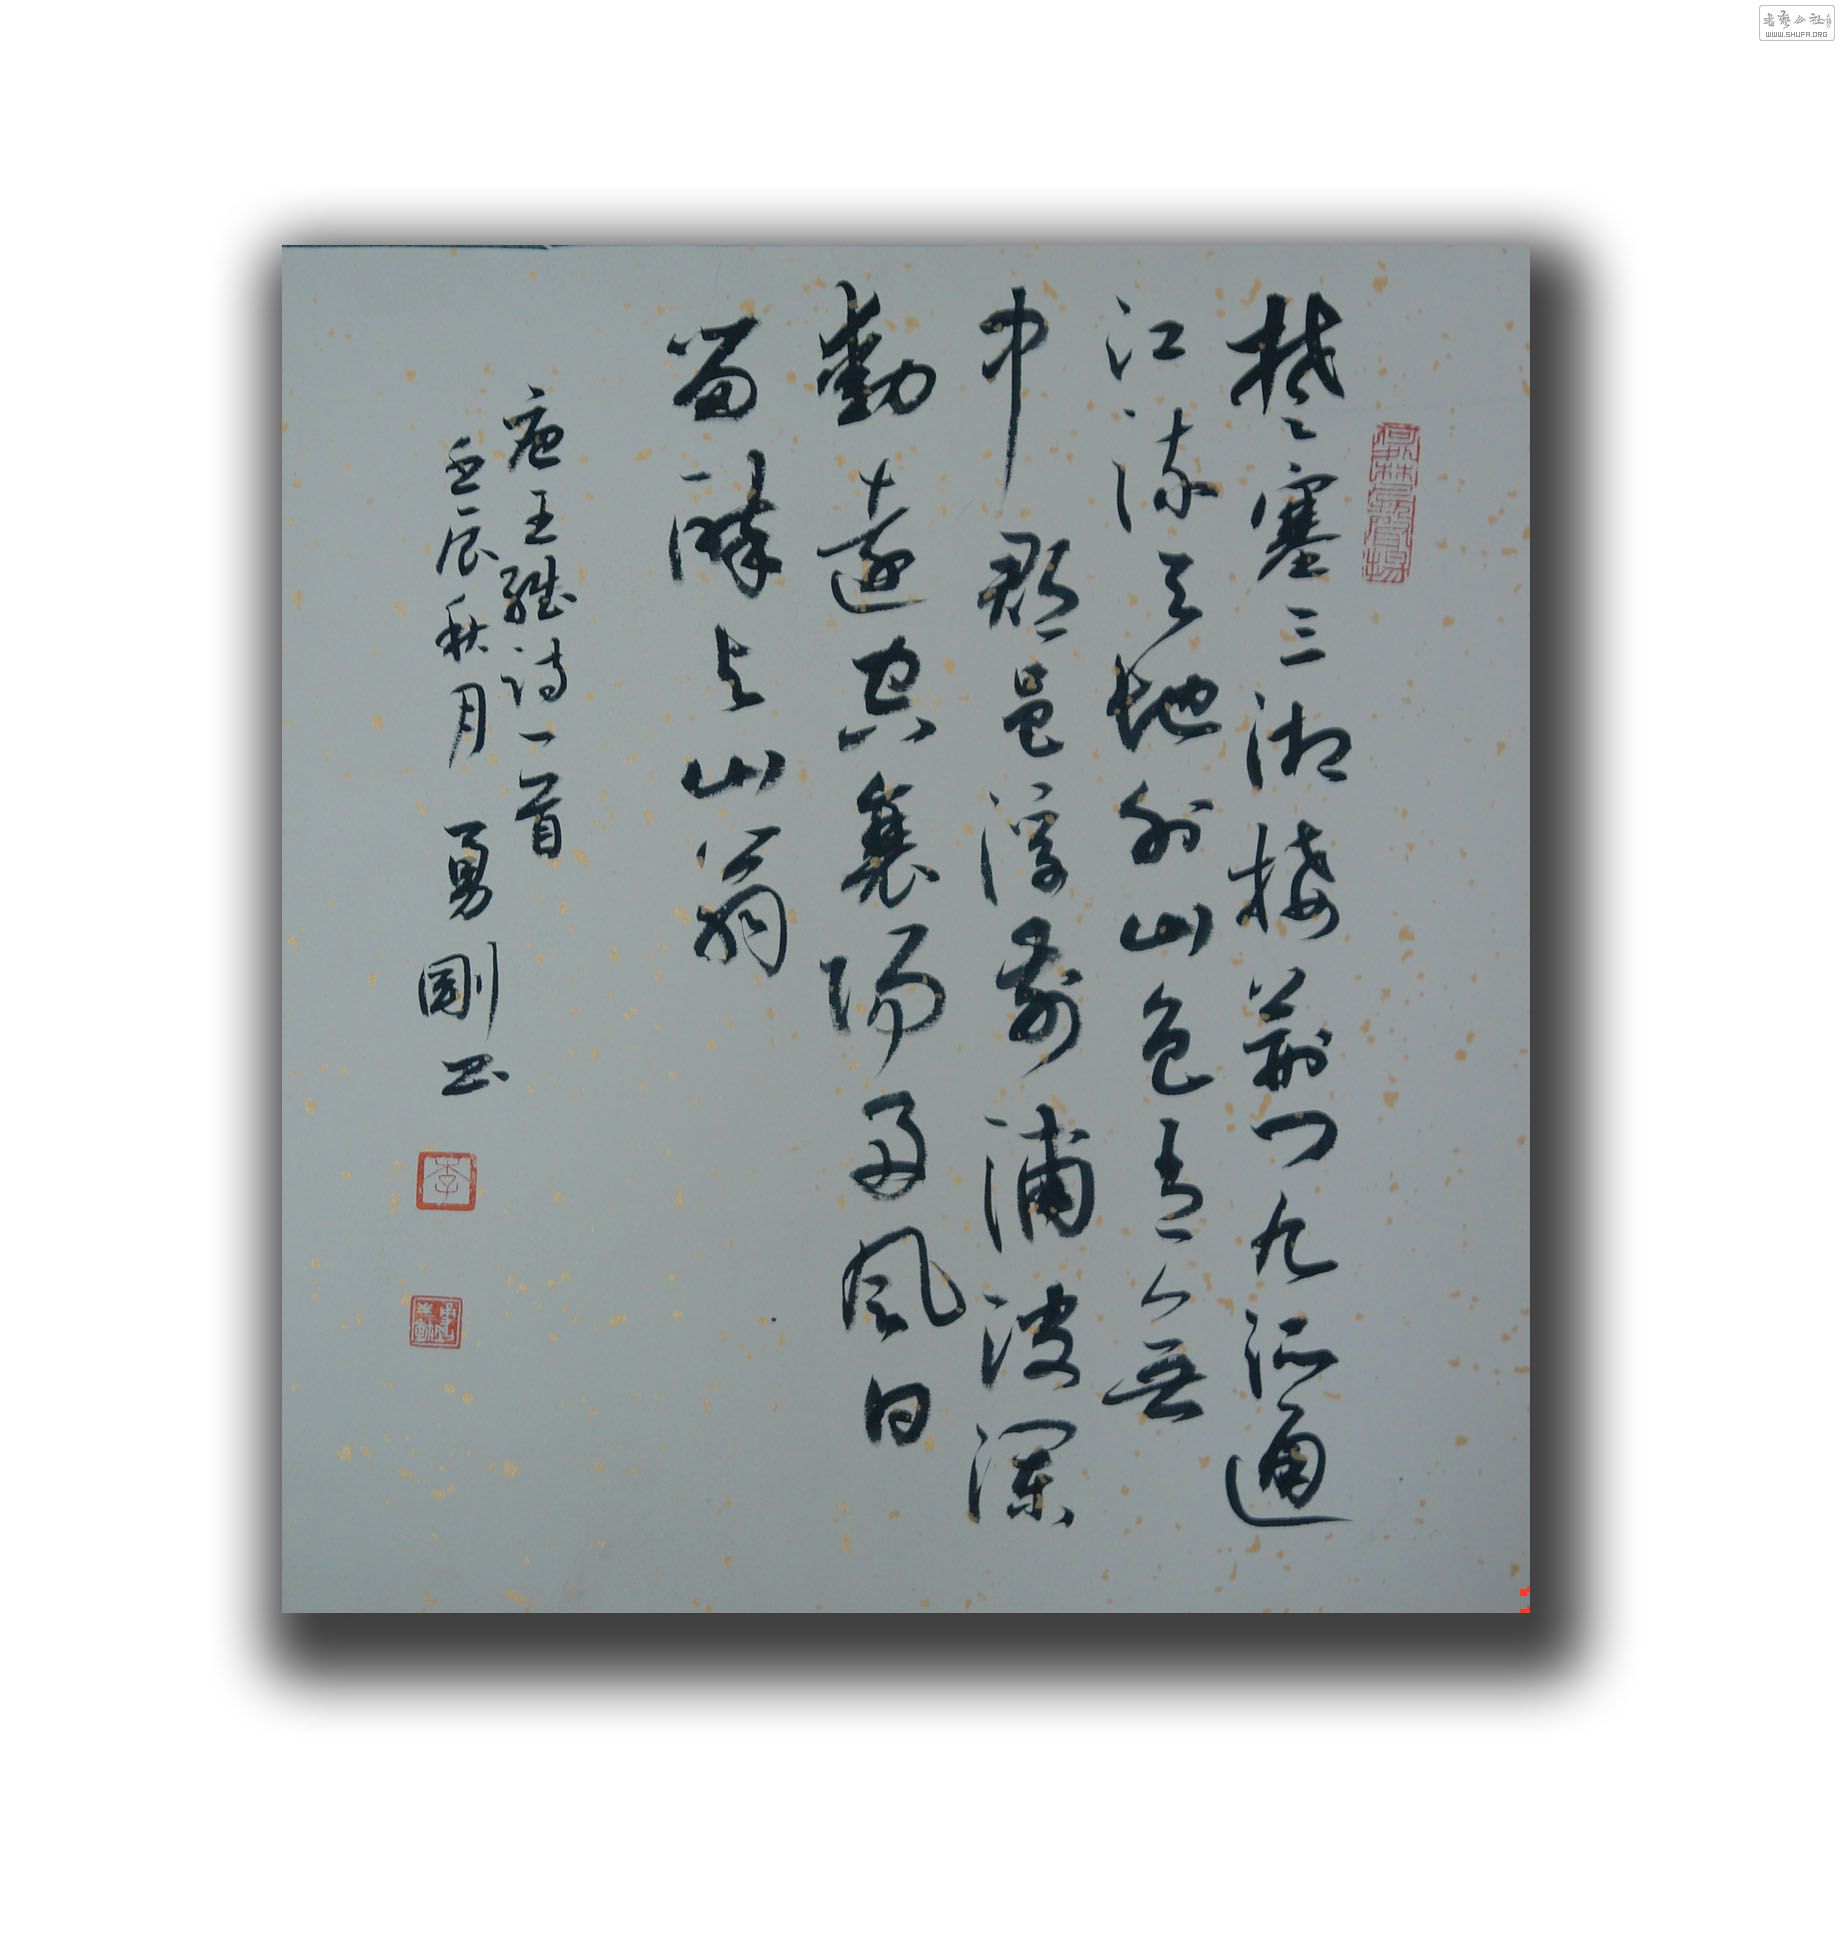 楚塞三湘接荆門九派通
江流天地外山色有無
中郡邑浮前浦波瀾
動遠空襄陽好風日
留醉与山翁
唐王維诗一首
壬辰秋月勇剛书
李
書藝公社
WWW.SHUFA.ORG